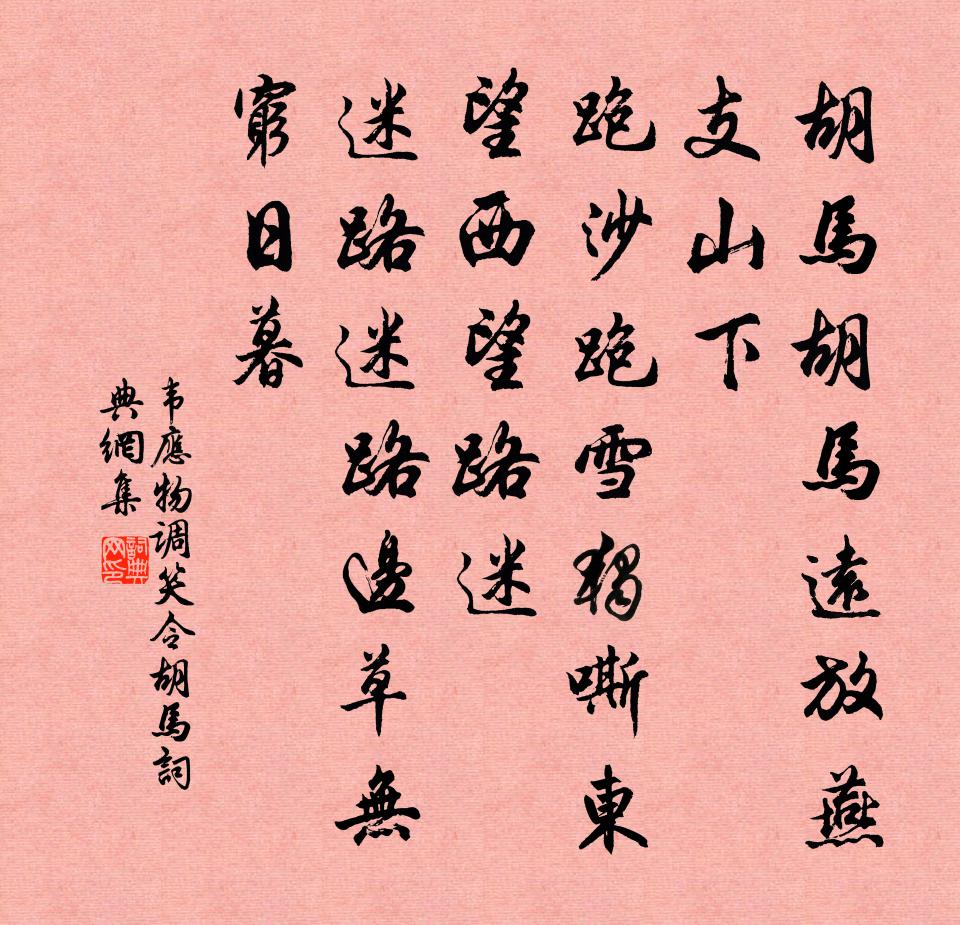 胡馬胡馬遠放燕
支山下
跑沙跑雪獨嘶東
望西望路迷
迷路迷路邊草無
窮日暮
韦應物调笑令胡馬詞
典網集
詞典
网印